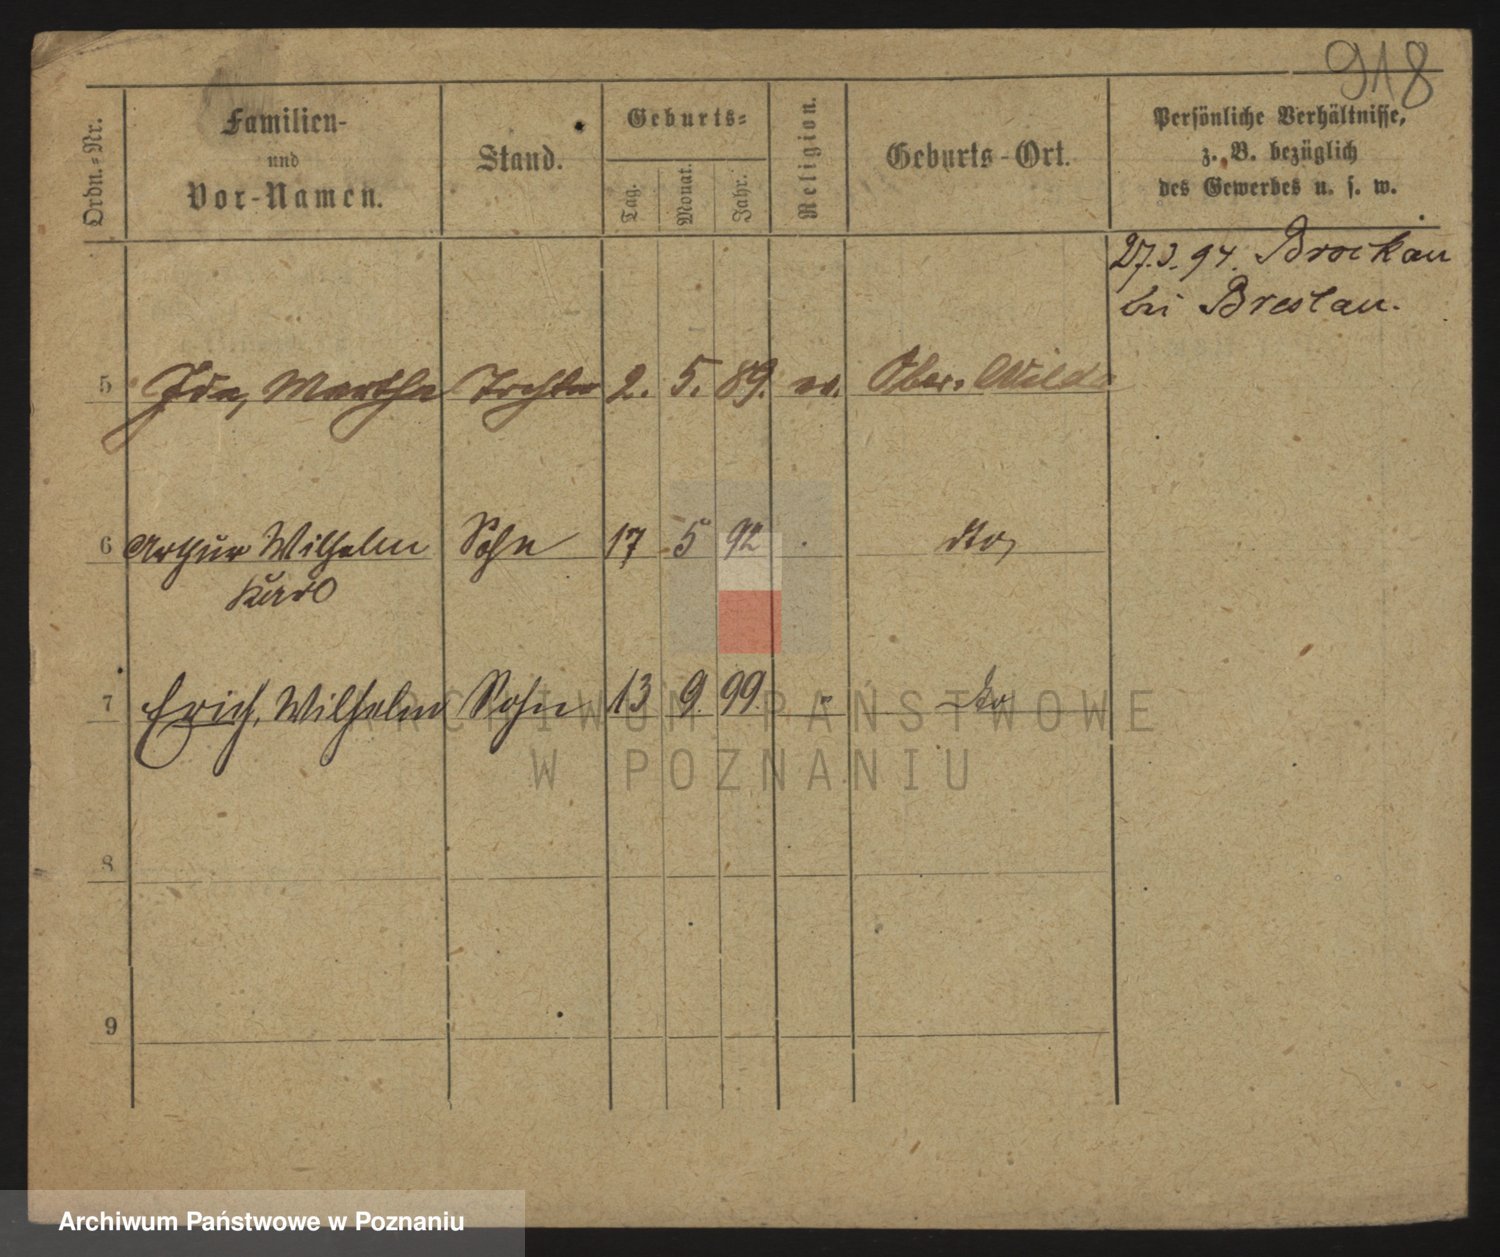 918
Ordn.-Nr.
Familien-
und
Vor-Namen.
Stand.
Geburts-
Tag.
Monat.
Jahr.
Religion.
Geburts-Ort.
Persönliche Verhältnisse,
z. B. bezüglich
des Gewerbes u. s. w.
27.3.94. Brockau
bei Breslau.
5 Ida, Martha Tochter 2. 5. 89. ev. Ober-Wilda
6 Arthur Wilhelm Sohn 17 5 92 dto
Karl
7 Erich, Wilhelm Sohn 13 9. 99. " dto
8
9
ARCHIWUM PAŃSTWOWE
W POZNANIU
Archiwum Państwowe w Poznaniu